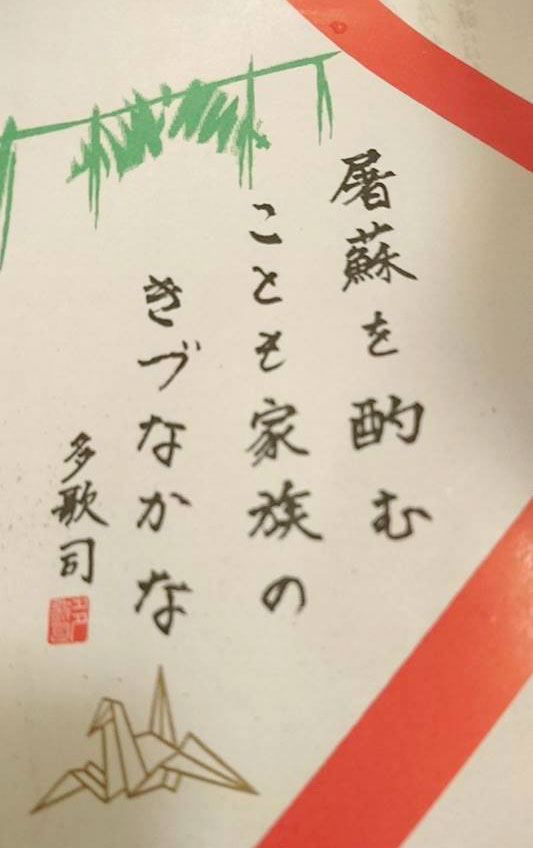 屠蘇を酌む
ことも家族の
きづなかな
多歌司